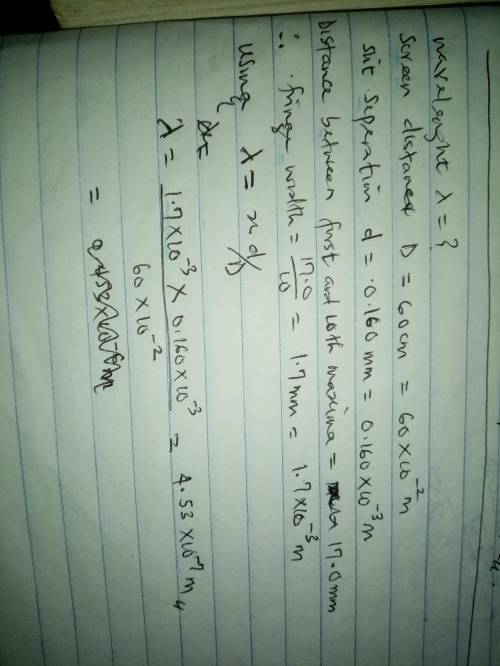 wavelenght λ = ?
screen distance D = 60cm = 60×10⁻² m
slit seperation d = 0.160 mm = 0.160×10⁻³ m
Distance between first and 10th maxima = 17.0 mm
∴ fringe width = 17.0/10 = 1.7mm = 1.7×10⁻³ m
using λ = xd/D
λ = 1.7×10⁻³ × 0.160×10⁻³ / 60×10⁻² = 4.53×10⁻⁷ m
=